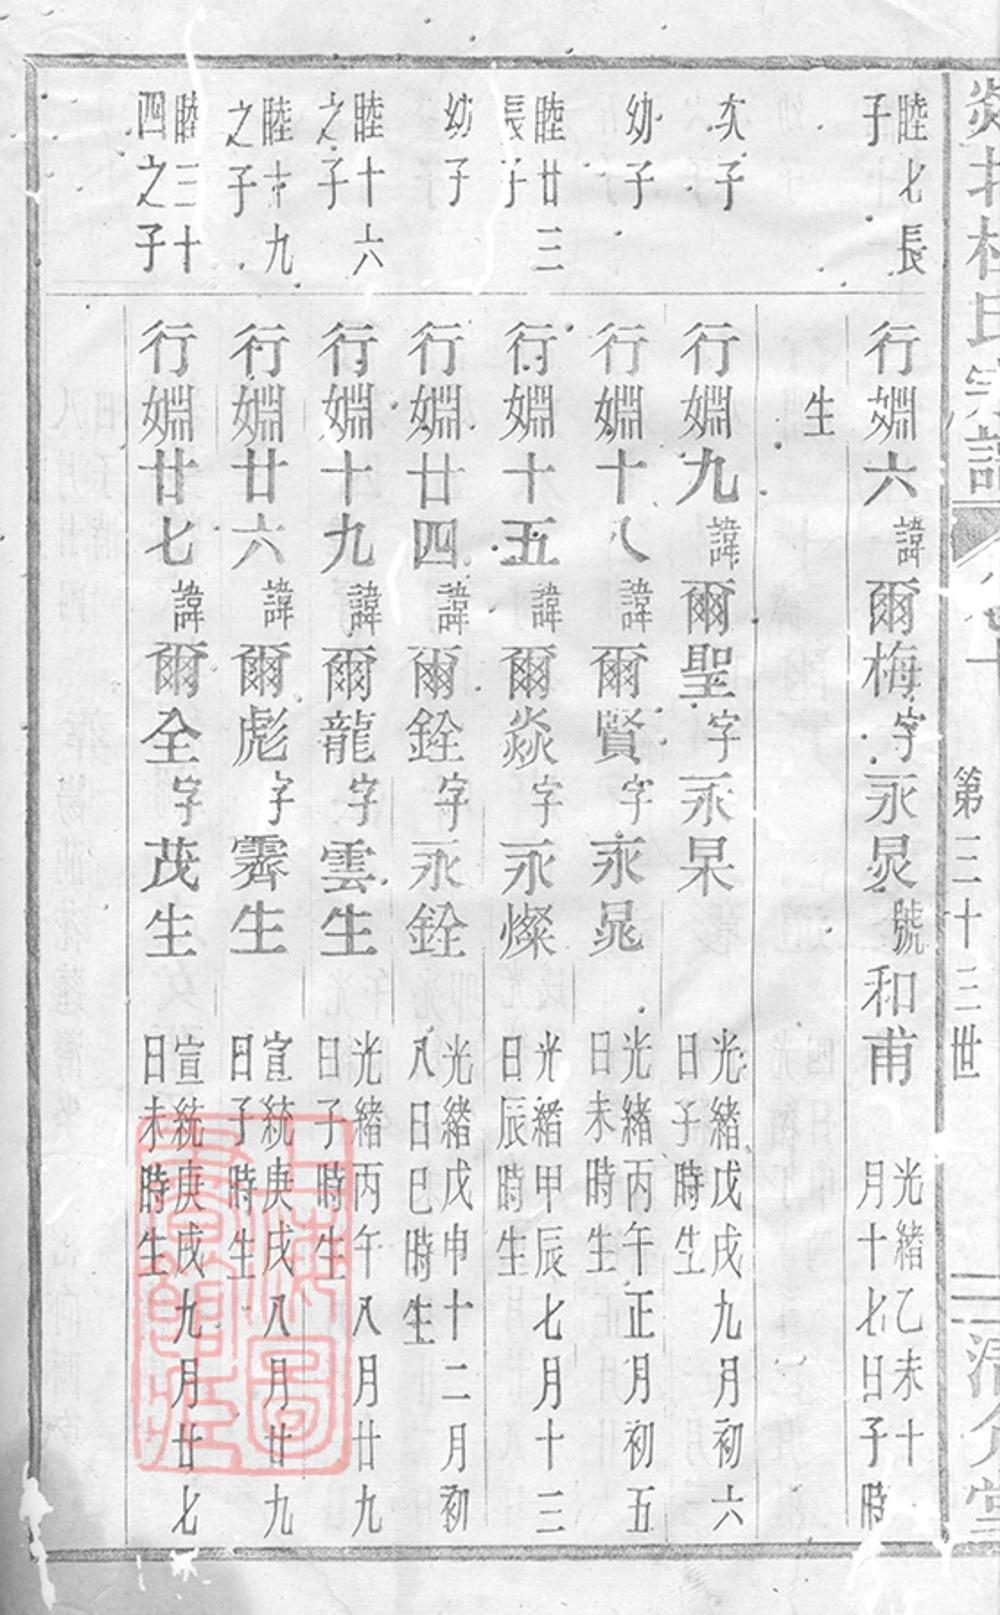 剡北杜氏宗譜
第三十三世
睦七長
子
行婣六諱爾梅字永炅號和甫
光緒乙未十
月十七日子時
生
次子
行婣九諱爾聖字永杲
光緒戊戌九月初六
日子時生
幼子
行婣十八諱爾賢字永晁
光緒丙午正月初五
日未時生
睦廿三
長子
行婣十五諱爾焱字永燦
光緒甲辰七月十三
日辰時生
幼子
行婣廿四諱爾銓字永銓
光緒戊申十二月初
八日巳時生
睦十六
之子
行婣十九諱爾龍字雲生
光緒丙午八月廿九
日子時生
睦十九
之子
行婣廿六諱爾彪字霽生
宣統庚戌八月廿九
日子時生
睦三十
四之子
行婣廿七諱爾全字茂生
宣統庚戌九月廿七
日未時生
上海圖書館藏